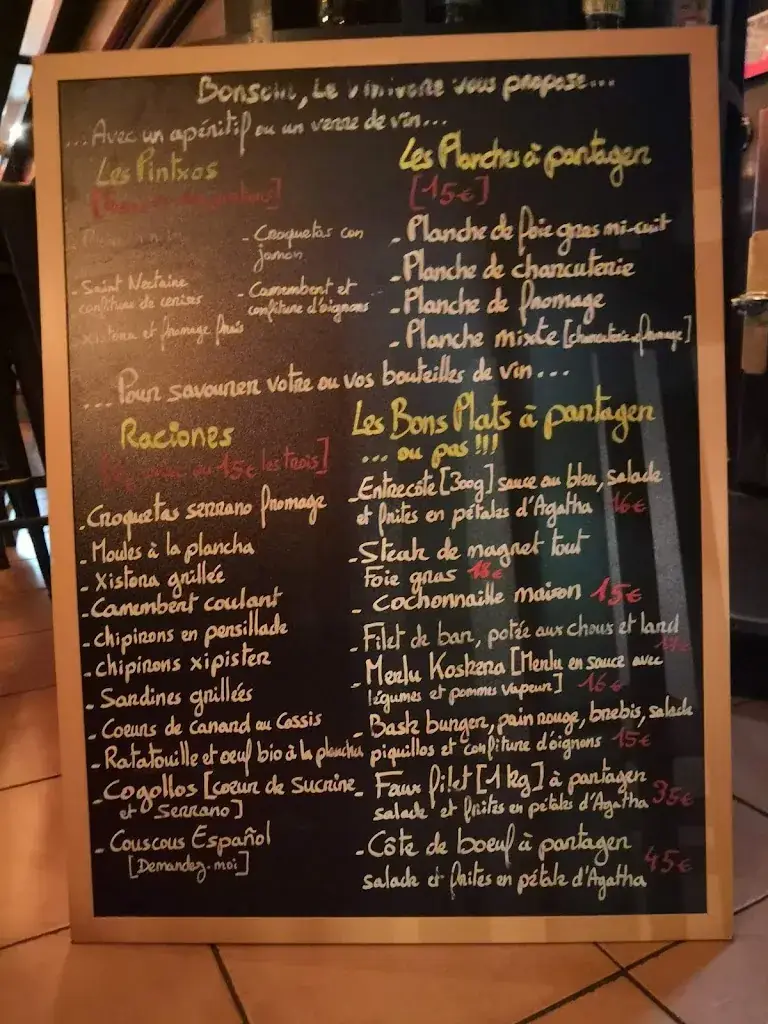 Bonsoir, Le Vinivore vous propose...
...Avec un apéritif ou un verre de vin...
Les Pintxos
- Croquetas con
jamon
- Saint Nectaire
confiture de cerises
- Camembert et
confiture d'oignons
Xistorra et fromage frais
Les Planches à partager
[15€]
- Planche de foie gras mi-cuit
- Planche de charcuterie
- Planche de fromage
- Planche mixte [charcuterie et fromage]
...Pour savourer votre ou vos bouteilles de vin...
Raciones
ou 15€ les trois]
- Croquetas serrano fromage
- Moules à la plancha
- Xistorra grillée
- Camembert coulant
- Chipirons en persillade
- Chipirons xipister
- Sardines grillées
- Coeurs de Canard au Cassis
- Ratatouille et oeuf bio à la plancha
- Cogollos [coeur de Sucrine
et Serrano]
- Couscous Español
[Demandez-moi]
Les Bons Plats à partager
... ou pas !!!
- Entrecôte [300g] sauce au bleu, salade
et frites en pétales d'Agatha 16€
- Steak de magret tout
Foie gras 18€
- Cochonnaille maison 15€
- Filet de bar, potée aux choux et lard
- Merlu Koskera [Merlu en sauce avec
légumes et pommes vapeur] 16€
- Bask burger, pain rouge, brebis, salade
piquillos et confiture d'oignons 15€
- Faux filet [1 kg] à partager
salade et frites en pétales d'Agatha 35€
- Côte de boeuf à partager
salade et frites en pétale d'Agatha 45€